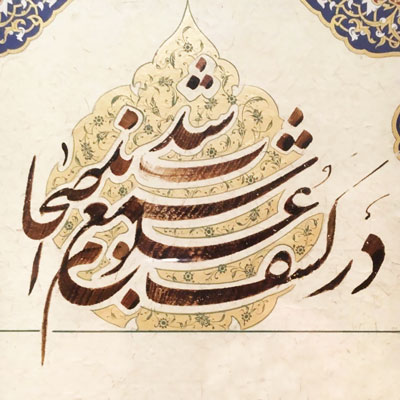 در کشف علوم شمع اصحاب شدند